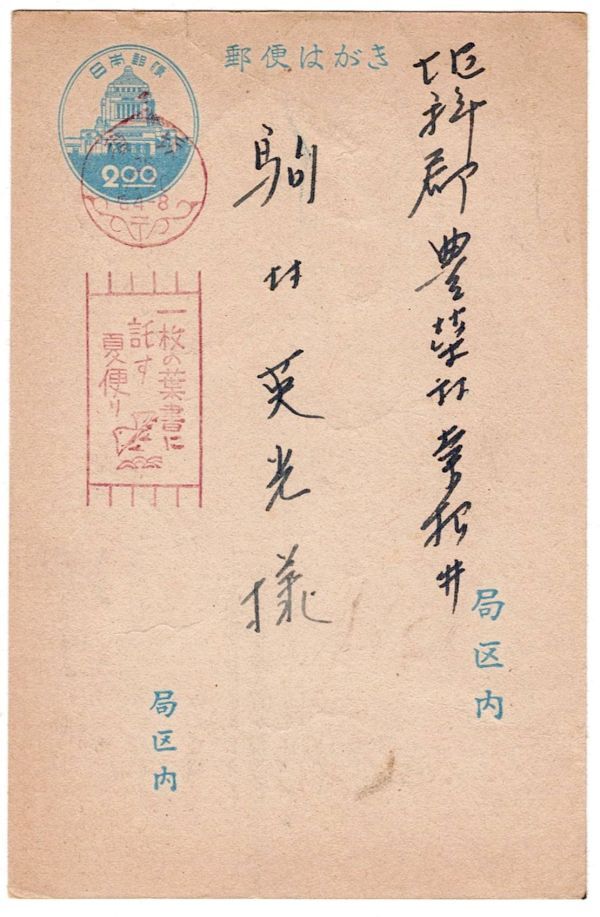 郵便はがき
日本郵便
2.00
埴科郡豊栄村桒根井
駒村英光様
一枚の葉書に
託す
夏便り
局区内
局区内